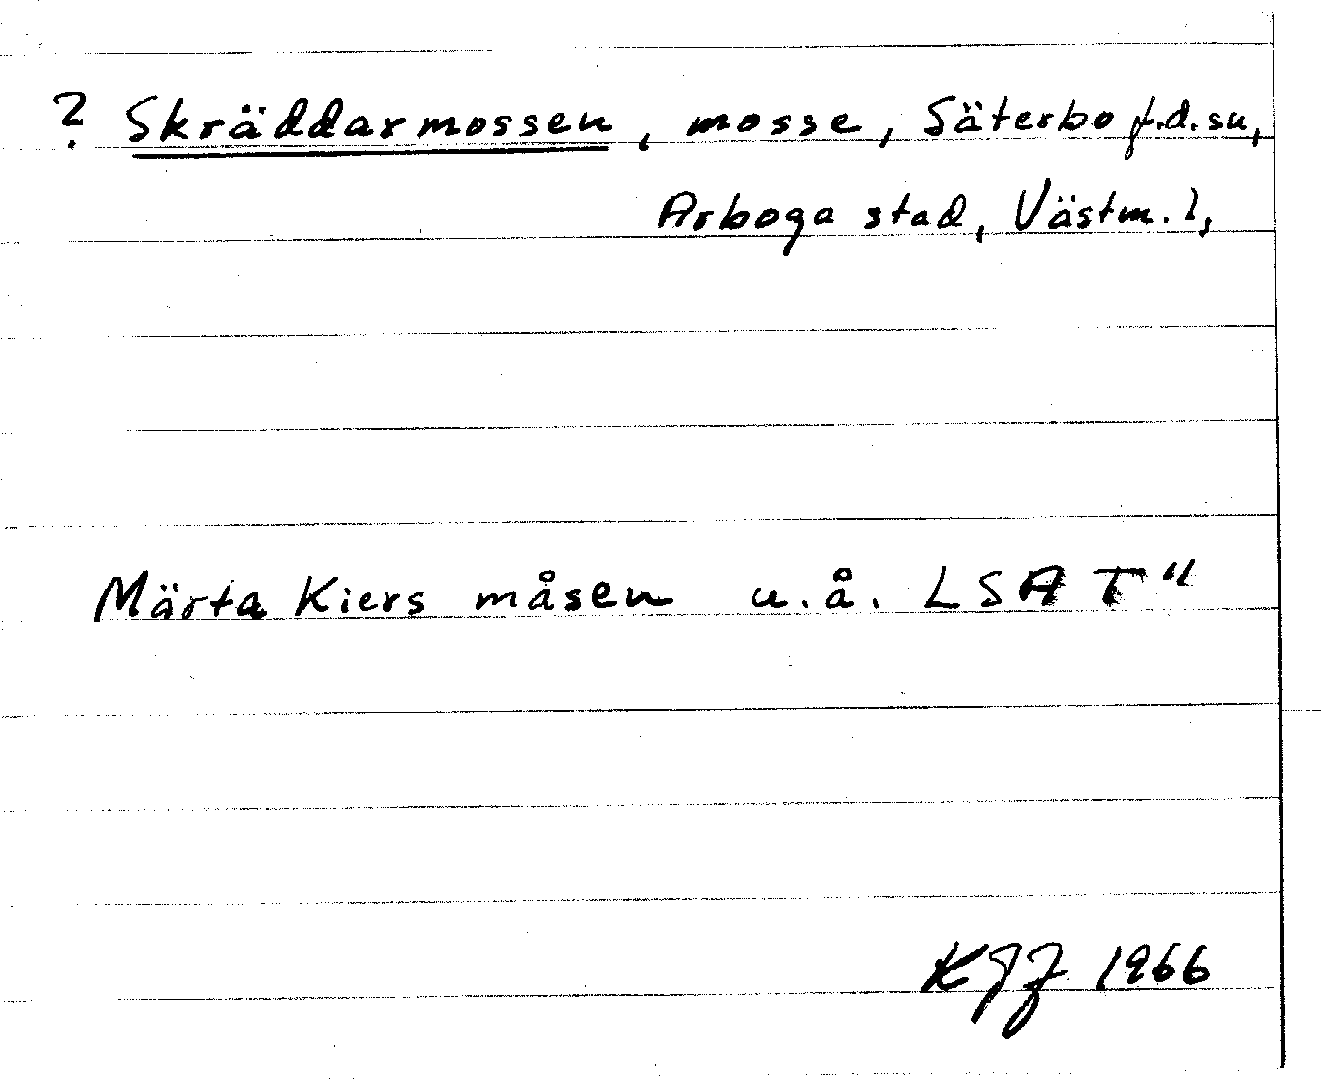 ? Skräddarmossen, mosse, Säterbo f.d. sn,
Arboga stad, Västm. l,
Märta Kiers måsen u.å. LSA T"
KJZ 1966